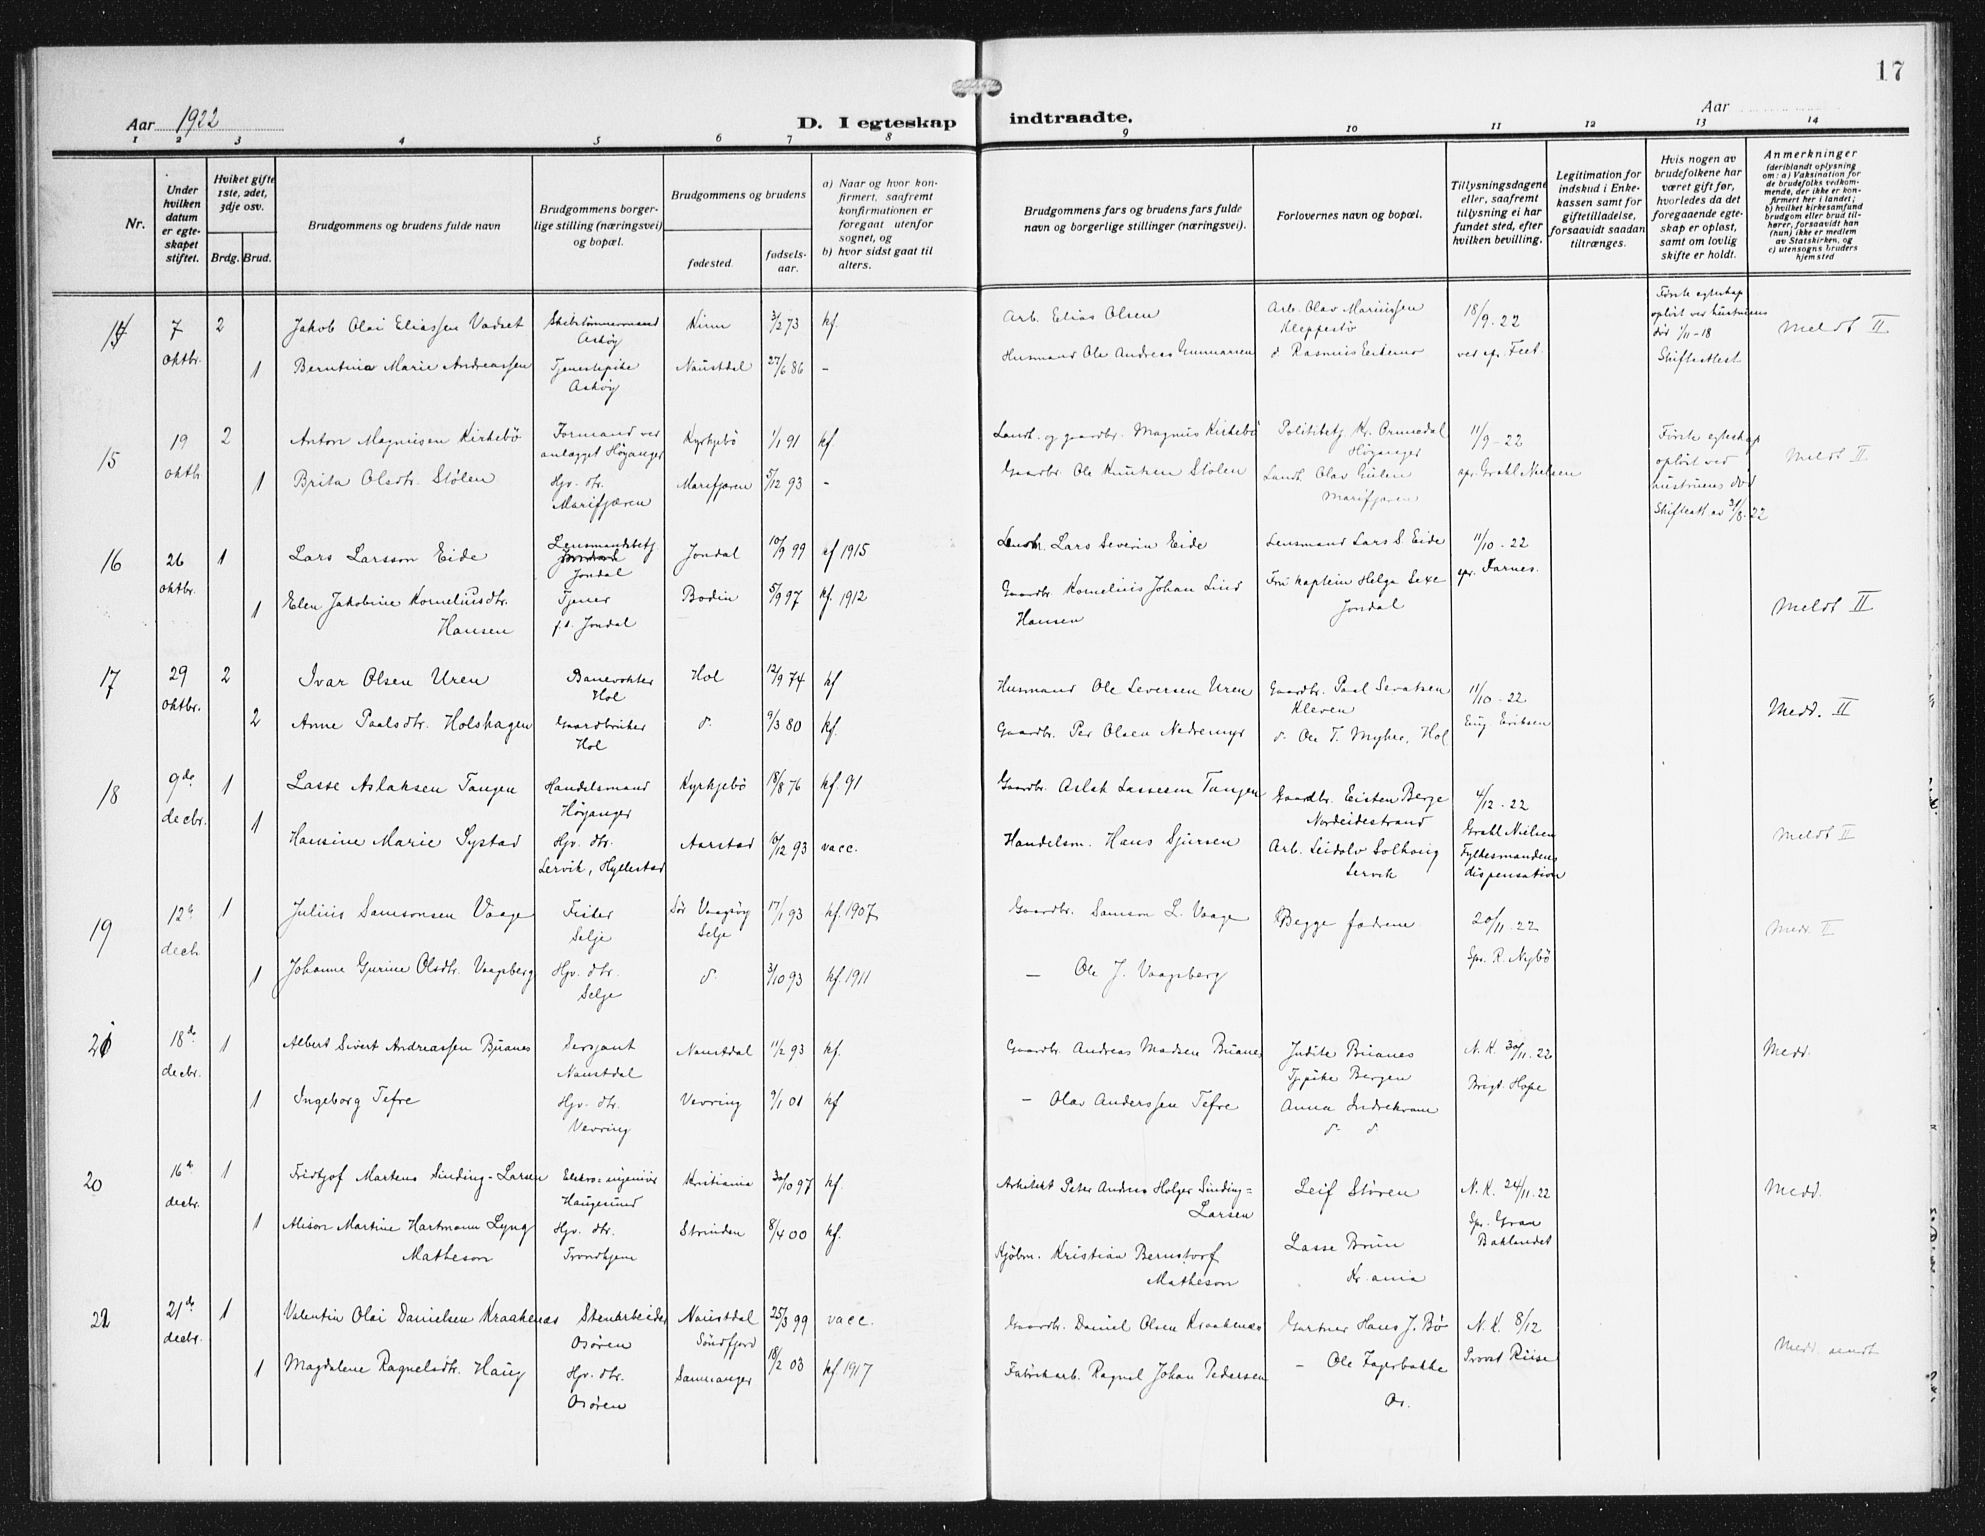 17
Aar 1922
D. I egteskap indtraadte.
Aar
1 2 3 4 5 6 7 8 9 10 11 12 13 14
Nr.
Under hvilken datum er egteskapet stiftet.
Hviket gifte 1ste, 2det, 3dje osv.
Brdg. Brud.
Brudgommens og brudens fulde navn
Brudgommens borgerlige stilling (næringsvei) og bopæl.
Brudgommens og brudens
fødested.
fødselsaar.
a) Naar og hvor konfirmert, saafremt konfirmationen er foregaat utenfor sognet, og
b) hvor sidst gaat til alters.
Brudgommens fars og brudens fars fulde navn og borgerlige stillinger (næringsvei).
Forlovernes navn og bopæl.
Tillysningsdagene eller, saafremt tillysning ei har fundet sted, efter hvilken bevilling.
Legitimation for indskud i Enkekassen samt for giftetilladelse, forsaavidt saadan tiltrænges.
Hvis nogen av brudefolkene har været gift før, hvorledes da det foregaaende egteskap er opløst, samt om lovlig skifte er holdt.
Anmerkninger
(deriblandt oplysning om: a) Vaksination for de brudefolks vedkommende, der ikke er konfirmert her i landet; b) hvilket kirkesamfund brudgom eller brud tilhører, forsaavidt han (hun) ikke er medlem av Statskirken, og c) utensogns bruders hjemsted
14 7 oktbr. 2 Jakob Olai Eliassen Vadset Skibstømmermand Askøy Kinn 3/2 73 kf Arb. Elias Olsen Arb. Olav Mariussen Kleppestø 18/9-22 Første egteskap opløst ved hustruens død 1/11-18 Skifteattest Meldt II
1 Berntine Marie Andreassen Tjenestepike Askøy Naustdal 27/6 86 - Husmand Ole Andreas Gunnarsen
15 19 oktbr 2 Anton Magnusen Kirkebø Formand ved anlægget Höyanger Kyrkjebö 1/1 91 kf Landh. og gaardbr. Magnus Kirkebö Politibetj. Kr. Ormedal Höyanger 11/9-22 Første egteskap opløst ved hustruens død Skifteatt av 31/8-22 Meldt II
1 Brita Olsdtr. Stølen Hjv. dtr. Marifjæren Marifjæren 5/12 93 - Gaardbr. Ole Knutsen Stölen Landh. Olav Gulen Marifjæren spr. Grahl Nielsen
16 26 oktbr. 1 Lars Larsson Eide Lensmandsbetj. Jondal Jondal 10/9 99 kf 1915 Lensm. Lars Severin Eide Lensmand Lars S. Eide 11/10-22 spr. Farnes.
1 Elen Jakobine Korneliusdtr. Hansen Tjener f.t. Jondal Bodin 5/9 97 kf. 1912 Gaardbr. Kornelius Johan Lind Hansen Fru kaptein Helga Sexe Jondal Meldt II
17 29 oktbr. 2 Ivar Olsen Uren Banevokter Hol Hol 12/9 74 kf Husmand Ole Seversen Uren Gaardbr. Paal Sevatsen Kleven 11/10-22 Medd. II
2 Anne Paalsdtr. Holshagen Gaardbruker Hol d. 9/3 80 kf. Gaardbr. Per Olsen Nedremyr d. Ole T. Myhre, Hol Eug. Eriksen
18 9de decbr. 1 Lasse Aslaksen Tangen Handelsmand Höyanger Kyrkjebö 18/8 76 kf. 91 Gaardbr. Aslak Lassesen Tangen Gaardbr. Eisten Berge Nordeidestrand 4/12-22
1 Hansine Marie Systad Hjv. dtr. Lervik, Hyllestad Aarstad 6/12 93 vacc. Handelsm. Hans Sjursen Arb. Leidolv Solhaug Lervik Grahl Nielsen Fylkesmandens dispensation Meldt II
19 12te decb. 1 Julius Samsonsen Vaage Fisker Selje Sör Vaagsöy Selje 17/1 93 kf. 1907 Gaardbr. Samson L. Vaage Begge fædrene 20/11-22 Medd II
1 Johanne Gurine Olsdtr. Vaagsberg Hjv. dtr. Selje d. 3/10 93 kf. 1911 - Ole J. Vaagsberg Spr. R. Nybö
21 18de decbr. 1 Albert Sivert Andreassen Buanes Sersjant Naustdal Naustdal 11/2 93 kf. Gaardbr. Andreas Madsen Buanes Judite Buanes Tjpike Bergen N.K. 30/11-22 Medd.
1 Ingeborg Tefre Hjv. dtr. Vevring Vevring 9/1 01 kf - Olav Anderssen Tefre Anna Indrekvam d. d. Brigd. Hope
20 16de decbr. 1 Fridtjof Martens Sinding-Larsen Elektro-ingeniör Haugesund Kristiania 30/10 97 kf. Arkitekt Peter Andreas Holger Sinding=Larsen Leif Stören N.K. 24/11-22 Medd.
1 Alison Martine Hartmann Lyng Matheson Hjv. dtr. Trondhjem Strinden 8/4 00 kf. Kjöbm. Kristian Bernstorf Matheson Lasse Brun Kr.ania Spr. Gran Baklandet
22 21de decbr. 1 Valentin Olai Danielsen Kraakenæs Stenarbeider Osören Naustdal Söndfjord 25/3 99 vacc. Gaardbr. Daniel Olsen Kraakenæs Gartner Hans J. Bö N.K. 8/12
1 Magdalene Ragnelsdtr. Haug Hjv. dtr. Osören Samnanger 18/2 03 kf 1917 Fabrikarb. Ragnel Johan Pedersen - Ole Fagerbakke Os. Provst Riise Medd. sendt